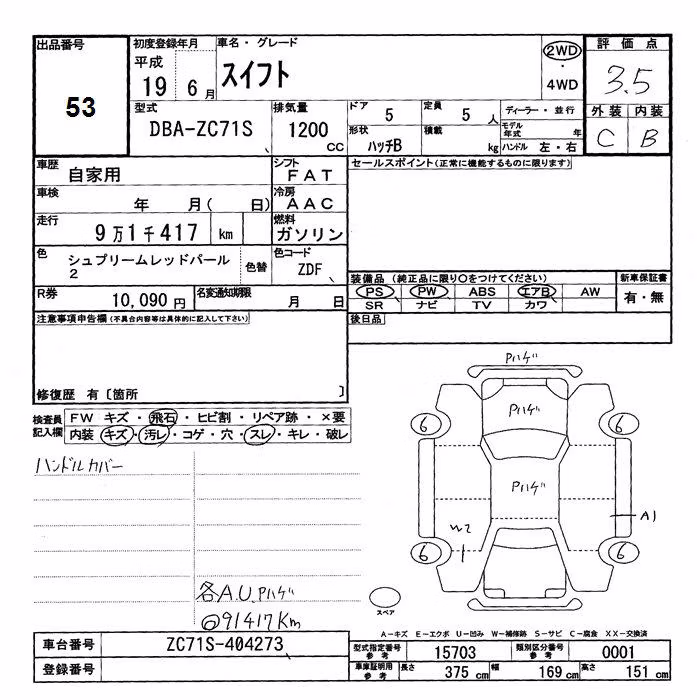 出品番号
53
初度登録年月
平成
19 6月
車名・グレード
スイフト
2WD
・
4WD
評価点
3.5
外装 内装
C B
型式
DBA-ZC71S
排気量
1200
CC
ドア
5
定員
5人
ディーラー・並行
形状
ハッチB
積載
kg
モデル年式 年
ハンドル 左・右
車歴
自家用
シフト
FAT
車検
年 月( 日)
冷房
AAC
走行
9万1千417 km
燃料
ガソリン
色
シュプリームレッドパール
2
色替
色コード
ZDF
R券
10,090円
名変通知期限
月 日
セールスポイント(正常に機能するものに限ります)
装備品(純正品に限り○をつけてください)
新車保証書
PS PW ABS エアB AW
有・無
SR ナビ TV カワ
後日品
注意事項申告欄(不具合内容等は具体的に記入して下さい)
修復歴 有〔箇所 〕
検査員記入欄
FW キズ・飛石・ヒビ割・リペア跡・×要
内装 キズ・汚レ・コゲ・穴・スレ・キレ・破レ
ハンドルカバー
各A.U.Pハゲ
@91417Km
Pハゲ
Pハゲ
Pハゲ
6
6
6
6
W2
A1
スペア
A-キズ E-エクボ U-凹み W-補修跡 S-サビ C-腐食 XX-交換済
車台番号
ZC71S-404273
登録番号
型式指定番号
参考
15703
類別区分番号
参考
0001
車庫証明用
参考
長さ 375 cm 幅 169 cm 高さ 151 cm